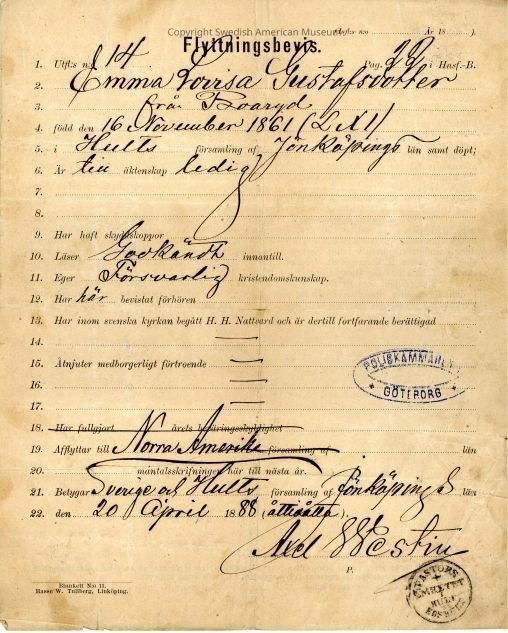 Copyright Swedish American Museum
(Utfl:s n:o År 18 ).
Flyttningsbevis.
1. Utfl:s n:o 14 Pag. 22 i Husf.-B.
2. Emma Lovisa Gustafsdotter
3. från Boaryd
4. född den 16 November 1861 (LXI)
5. i Hults församling af Jönköpings län samt döpt;
6. Är till äktenskap ledig
7.
8.
9. Har haft skyddskoppor
10. Läser Godkändt innantill.
11. Eger Försvarlig kristendomskunskap.
12. Har här bevistat förhören
13. Har inom svenska kyrkan begått H. H. Nattvard och är dertill fortfarande berättigad
14. —
15. Åtnjuter medborgerligt förtroende —
16. —
17. —
POLISKAMMAREN
GÖTEBORG
18. Har fullgjort årets beväringsskyldighet
19. Afflyttar till Norra Amerika församling af län
20. mantalsskrifningen här till nästa år.
21. Betygar Sverige och Hults församling af Jönköpings län
22. den 20 April 1888 (åttiåtta).
Axel Westin
P.
PASTORS
EMBETET
HULT
Blankett N:o 11.
Hasse W. Tullberg, Linköping.